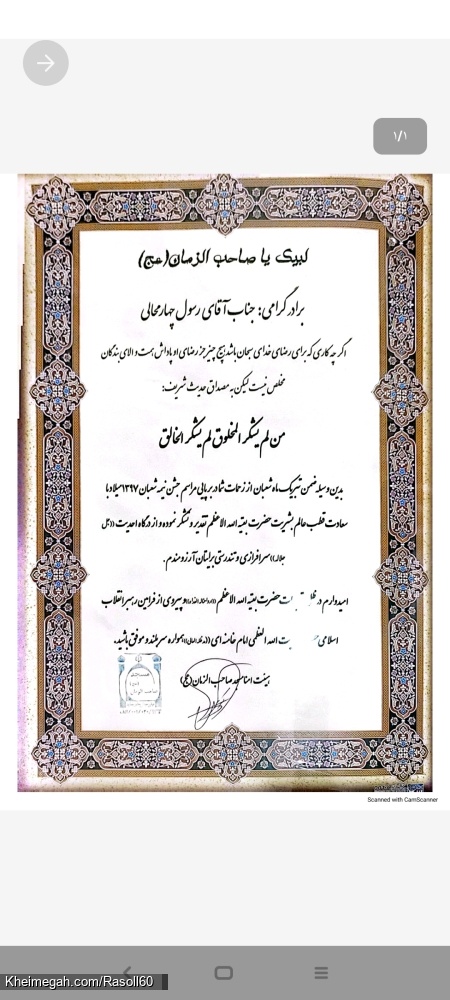 ۱/۱
لبیک یا صاحب الزمان(عج)
برادر گرامی: جناب آقای رسول چهارمحالی
اگر چه کاری که برای رضای خدای سبحان باشد هیچ چیز جز رضای او پاداش همت والای بندگان
مخلص نیست لیکن به مصداق حدیث شریف:
من لم یشکر المخلوق لم یشکر الخالق
بدین وسیله ضمن تبریک ماه شعبان از زحمات شما در برپائی مراسم جشن نیمه شعبان ۱۳۹۷ میلاد با
سعادت قطب عالم بشریت حضرت بقیه الله الاعظم تقدیر و تشکر نموده و از درگاه احدیت ((جل
جلاله)) سرافرازی و تندرستی برایتان آرزومندم.
امیدوارم در حضرت بقیه الله الاعظم و پیروی از فرامین رهبر انقلاب
اسلامی الله العظمی امام خامنه ای همواره سربلند و موفق باشید.
هیئت امنا مسجد صاحب الزمان(عج)
Scanned with CamScanner
Kheimegah.com/Rasoll60